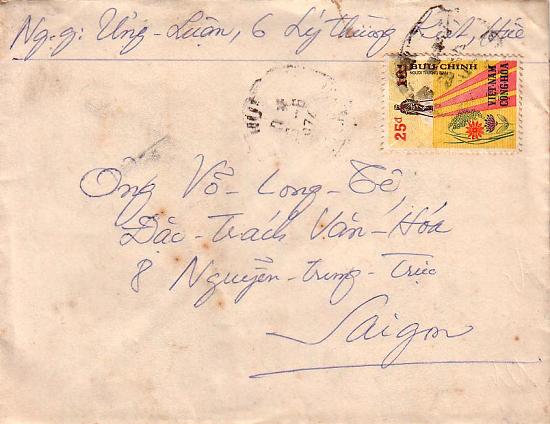 Ng.g: Ưng-Luận, 6 Lý thường Kiệt, Huế
BƯU CHÍNH
NGƯỜI THƯƠNG BINH
VIỆT-NAM
CỘNG-HÒA
25đ
HUE
Ông Võ-Long-Tê
Đặc-trách Văn-Hóa
8 Nguyễn-trung-Trực
Saigon